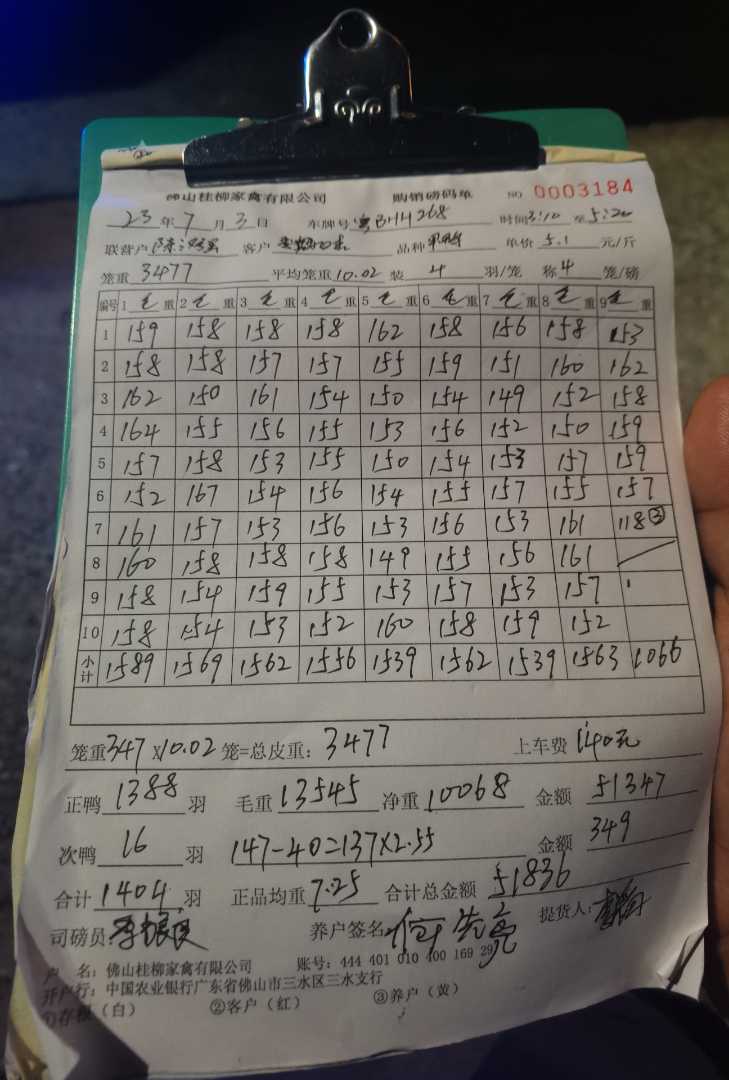 佛山桂柳家禽有限公司 购销磅码单 NO 0003184
23 年 7 月 3 日 车牌号 粤BHH268 时间 3:10 至 5:20
联营户 客户 品种 单价 5.1 元/斤
笼重 3477 平均笼重 10.02 装 4 羽/笼 称 4 笼/磅
编号 1 毛 重 2 毛 重 3 毛 重 4 毛 重 5 毛 重 6 毛 重 7 毛 重 8 毛 重 9 毛 重
1 159 158 158 158 162 158 156 158 153
2 158 158 157 157 155 159 151 160 162
3 162 150 161 154 150 154 149 152 158
4 164 155 156 155 153 156 152 150 159
5 157 158 153 155 150 154 153 157 159
6 152 167 154 156 154 155 157 155 157
7 161 157 153 156 153 156 153 161 118③
8 160 158 158 158 149 155 156 161
9 158 154 159 155 153 157 153 157
10 158 154 153 152 160 158 159 152
小计 1589 1569 1562 1556 1539 1562 1539 1563 1066
笼重 347 x10.02 笼=总皮重: 3477 上车费 1140元
正鸭 1388 羽 毛重 13545 净重 10068 金额 51347
次鸭 16 羽 147-40=137x2.55 金额 349
合计 1404 羽 正品均重 7.25 合计总金额 51836
司磅员: 养户签名 提货人:
户 名: 佛山桂柳家禽有限公司 账号: 444 401 010 400 169 29
开户行: 中国农业银行广东省佛山市三水区三水支行
①存根(白) ②客户(红) ③养户(黄)